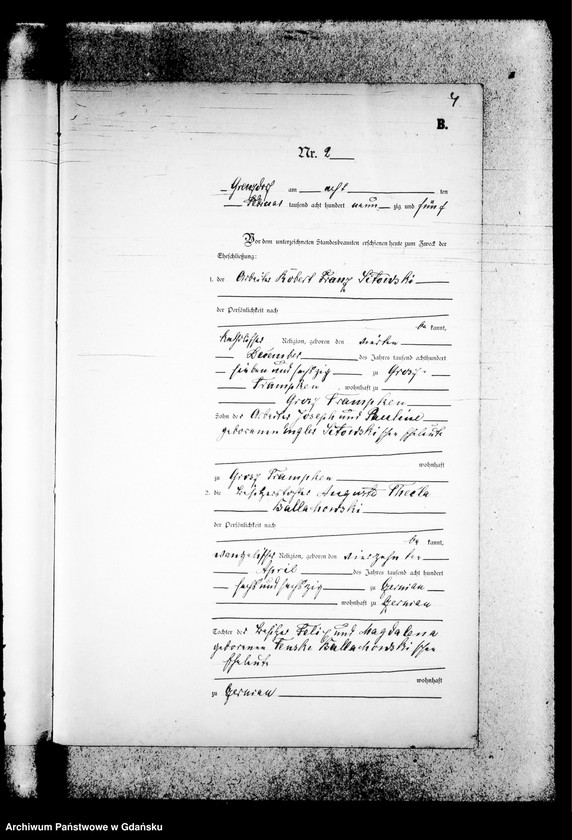 4
B.
Nr. 2
am acht ten
Februar tausend acht hundert neun zig und fünf
Vor dem unterzeichneten Standesbeamten erschienen heute zum Zweck der
Eheschließung:
1. der Arbeiter Robert Franz
der Persönlichkeit nach
be kannt,
katholischer Religion, geboren den vierten
December des Jahres tausend achthundert
sieben und sechszig zu Groß
Trampken, wohnhaft zu
Groß Trampken
Sohn des Arbeiter Joseph und Pauline
geborenen Engler Eheleute
wohnhaft
zu Groß Trampken
2. die Besitzerstochter Auguste Thecla
Ballachowski
der Persönlichkeit nach
be kannt,
evangelischer Religion, geboren den vierzehnten
April des Jahres tausend acht hundert
sechs und sechszig zu
wohnhaft zu
Tochter des Besitzer Felix und Magdalena
geborenen Ballachowskischen
Eheleute
wohnhaft
zu
Archiwum Państwowe w Gdańsku